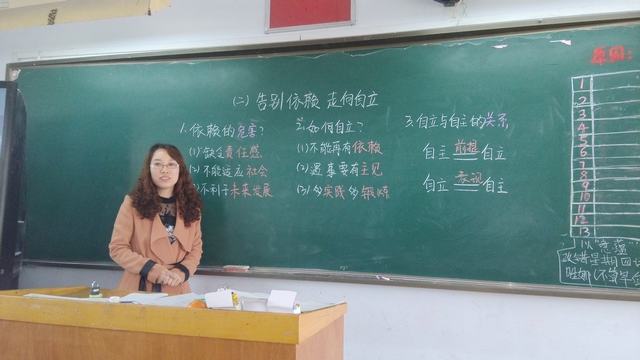 (二)告别依赖 走向自立
1.依赖的危害?
(1)缺乏责任感
(2)不能适应社会
(3)不利于未来发展
2.如何自立?
(1)不能再有依赖
(2)遇事要有主见
(3)多实践多锻炼
3.自立与自主的关系
自主 前提 自立
自立 表现 自主
1
2
3
4
5
6
7
8
9
10
11
12
13